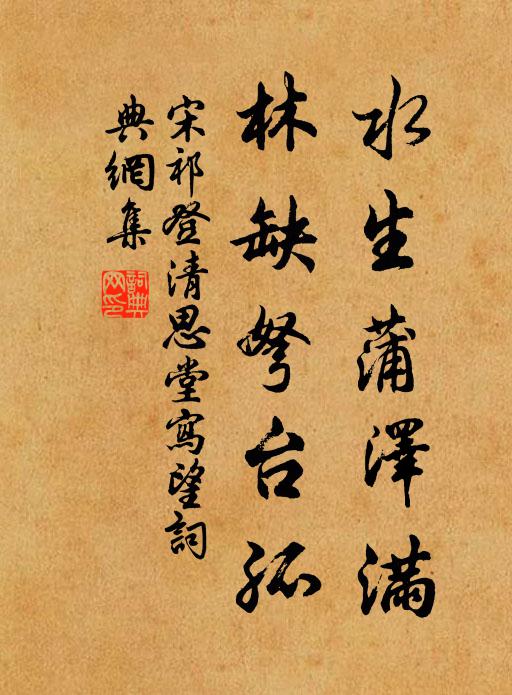 水生蒲澤滿
林缺弩台孤
宋祁登清思堂寫望詞
典網集
詞典
网印